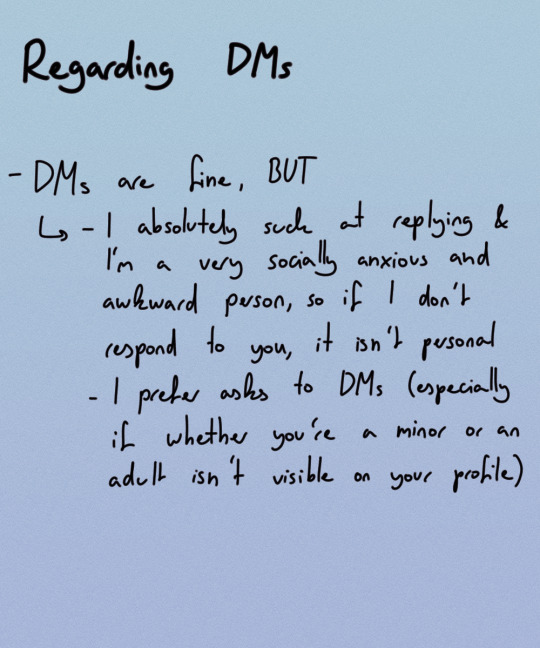 Regarding DMs
- DMs are fine, BUT
↳ - I absolutely suck at replying &
I'm a very socially anxious and
awkward person, so if I don't
respond to you, it isn't personal
- I prefer asks to DMs (especially
if whether you're a minor or an
adult isn't visible on your profile)